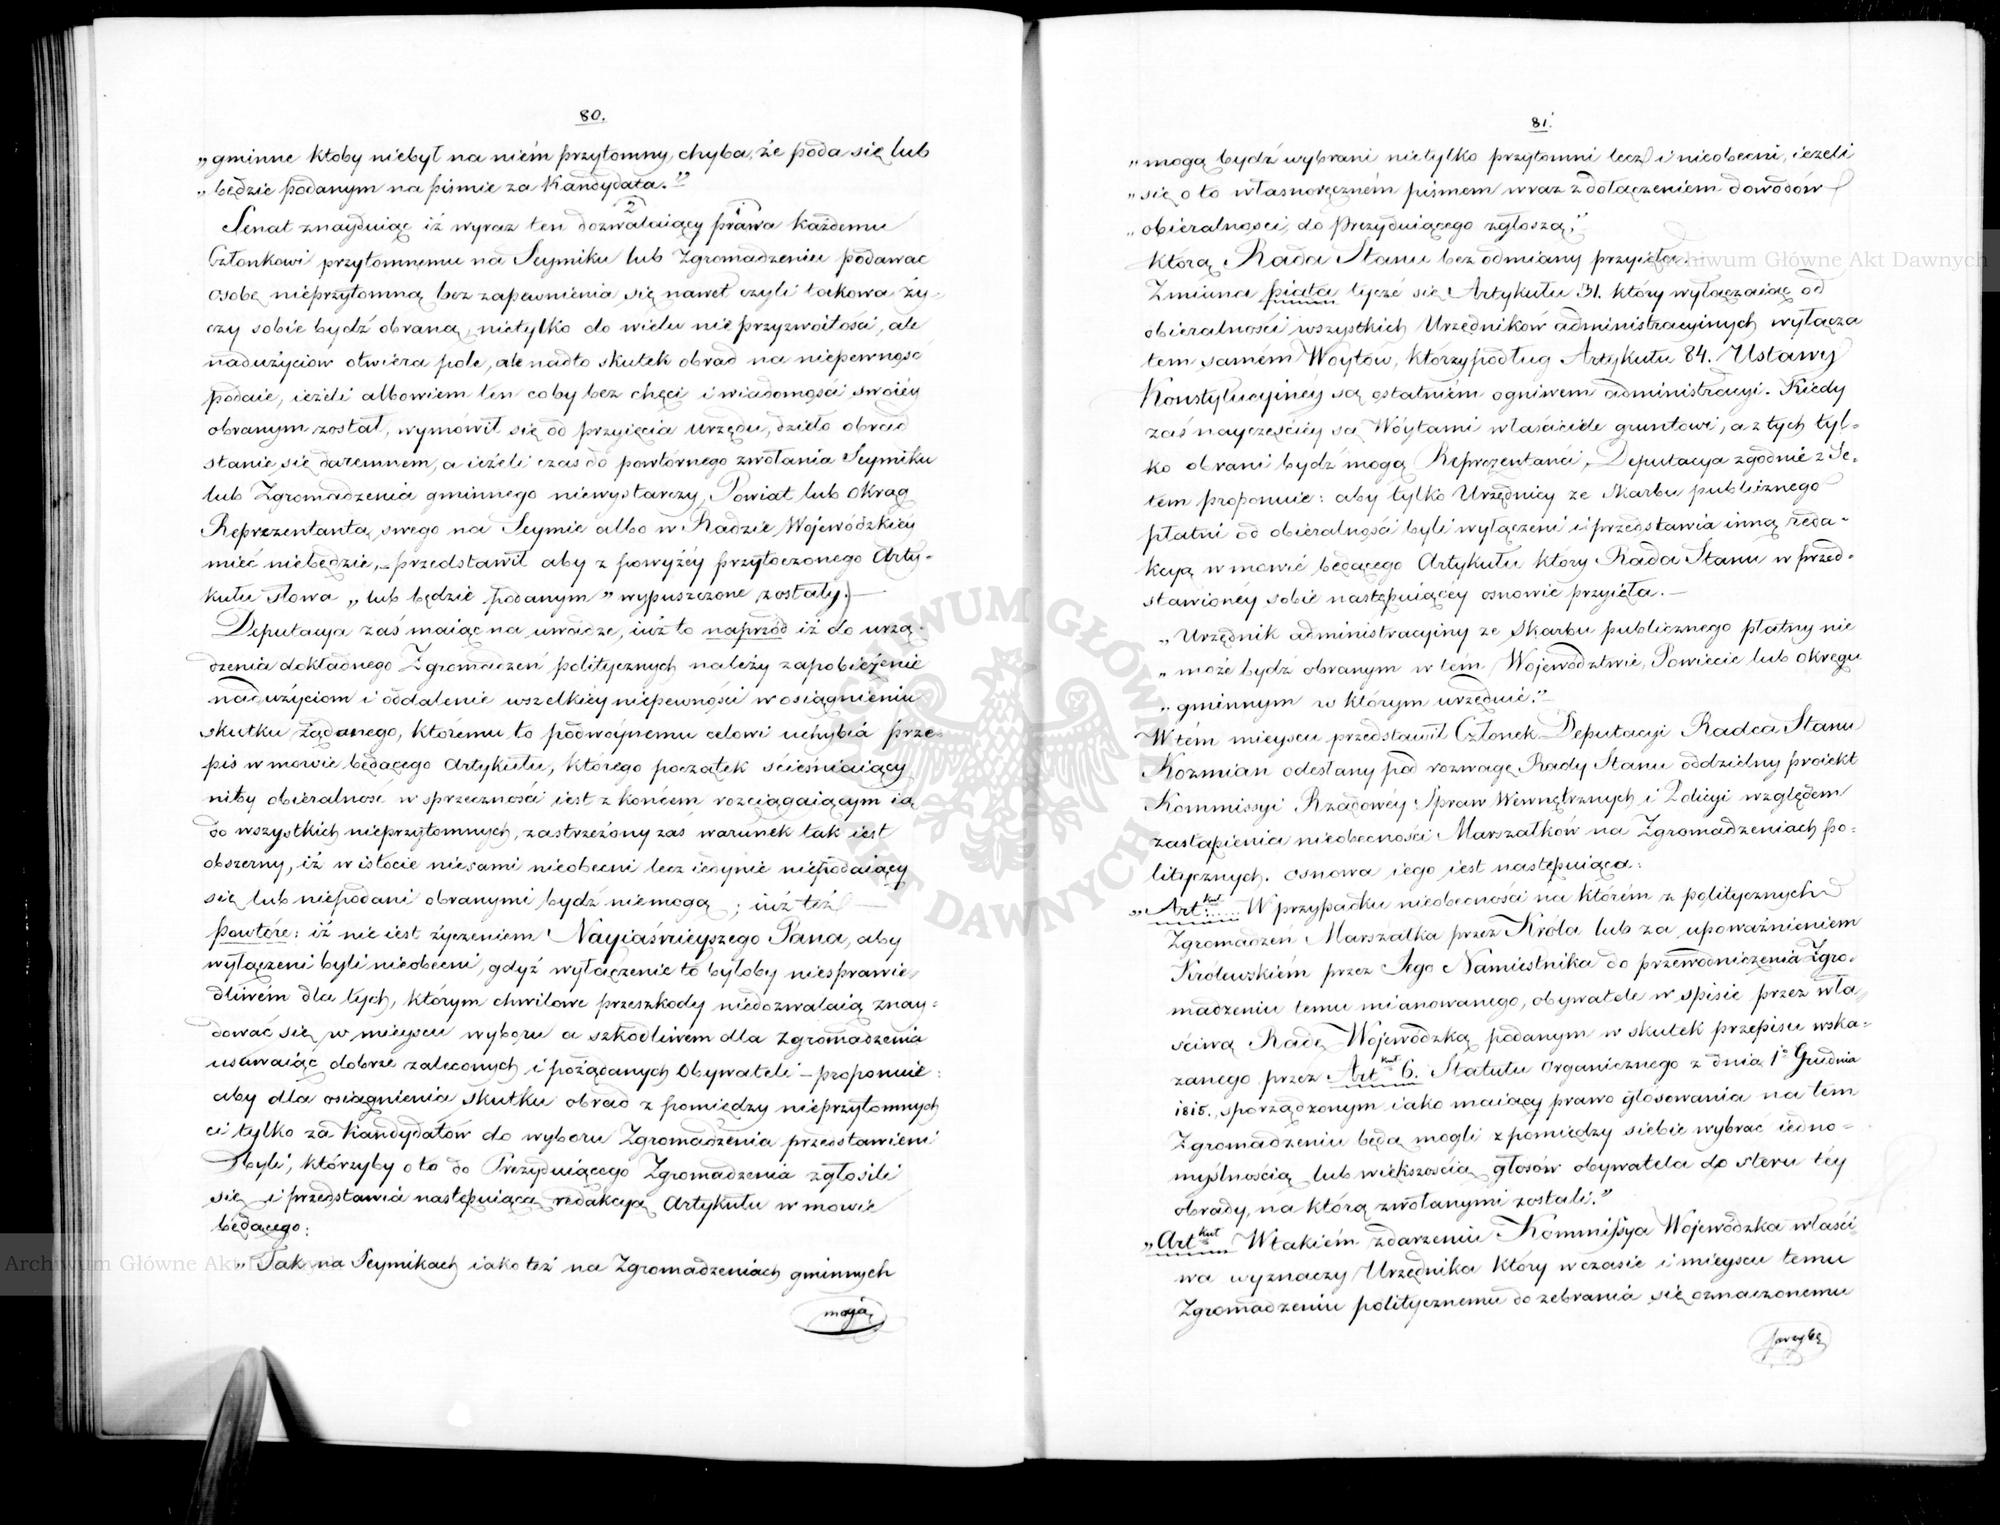 80.
„gminne ktoby niebył na niém przytomny, chyba, że poda się lub
„będzie podanym na piśmie za Kandydata."
Senat znayduiąc iż wyraz ten dozwalaiący prawa każdemu
Członkowi przytomnemu na Seymiku lub Zgromadzeniu podawać
osobę nieprzytomną bez zapewnienia się nawet czyli takowa ży-
czy sobie bydź obraną, nietylko do wielu nieprzyzwoitości, ale
nadużyciów otwiéra pole, ale nadto skutek obrad na niepewność
podaie, ieżeli albowiem ten coby bez chęci i wiadomości swoiéy
obranym został, wymówił się od przyięcia urzędu, dzieło obrad
stanie się daremnem, a ieżeli czas do powtórnego zwołania Seymiku
lub Zgromadzenia gminnego niewystarczy, Powiat lub Okrąg
Reprezentanta swego na Seymie albo w Radzie Wojewódzkiéy
mieć niebędzie, – przedstawił aby z powyżéy przytoczonego Arty-
kułu słowa „lub będzie podanym" wypuszczone zostały. –
Deputacya zaś maiąc na uwadze, iuż to naprzód iż do urzą-
dzenia dokładnego Zgromadzeń politycznych należy zapobieżenie
nadużyciom i oddalenie wszelkiéy niepewności w osiągnieniu
skutku żądanego, któremu to podwóynemu celowi uchybia prze-
pis w mowie będącego Artykułu, którego początek ścieśniaiący
niby obieralność w sprzeczności iest z końcem rozciągaiącym ią
do wszystkich nieprzytomnych, zastrzeżony zaś warunek tak iest
obszerny, iż w istocie niesami nieobecni lecz iedynie niepodaiący
się lub niepodani obranymi bydź niemogą; iuż też –
powtóre: iż nie iest życzeniem Nayiaśnieyszego Pana, aby
wyłączeni byli nieobecni, gdyż wyłączenie to byłoby niesprawie-
dliwém dla tych, którym chwilowe przeszkody niedozwalaią znay-
dować się w mieyscu wyboru a szkodliwem dla Zgromadzenia
usuwaiąc dobrze zaleconych i pożądanych Obywateli – proponuie:
aby dla osiągnienia skutku obrad z pomiędzy nieprzytomnych
ci tylko za Kandydatów do wyboru Zgromadzenia przedstawieni
byli, którzyby o to do Prezyduiącego Zgromadzenia zgłosili
się i przedstawia następuiącą redakcyą Artykułu w mowie
będącego:
„Tak na Seymikach iako też na Zgromadzeniach gminnych
mogą
81.
„mogą bydź wybrani nietylko przytomni lecz i nieobecni, ieżeli
„się o to własnoręczném pismem wraz z dołączeniem dowodów
„obieralności do Prezyduiącego zgłoszą;"
którą Rada Stanu bez odmiany przyięła.
Zmiana piąta tycze się Artykułu 31. który wyłączaiąc od
obieralności wszystkich Urzędników administracyinych wyłącza
tem samém Woytów, którzy podług Artykułu 84. Ustawy
Konstytucyiney są ostatniém ogniwem administracyi. Kiedy
zaś nayczęściéy są Wóytami właściciele gruntowi, a z tych tyl-
ko obrani bydź mogą Reprezentanci, Deputacya zgodnie z Se-
tem proponuie: aby tylko Urzędnicy ze Skarbu publicznego
płatni od obieralności byli wyłączeni i przedstawia inną reda-
kcyą w mowie będącego Artykułu który Rada Stanu w przed-
stawionéy sobie następuiącéy osnowie przyięła. –
„Urzędnik administracyiny ze Skarbu publicznego płatny nie
„może bydź obranym w tém Województwie, Powiecie lub Okręgu
„gminnym w którym urzęduie." –
W tém mieyscu przedstawił Członek Deputacyi Radca Stanu
Kozmian odesłany pod rozwagę Rady Stanu oddzielny proiekt
Kommissyi Rządowéy Spraw Wewnętrznych i Policyi względem
zastąpienia nieobecności Marszałków na Zgromadzeniach po-
litycznych. Osnowa iego iest następuiąca:
„Artkuł W przypadku nieobecności na którém z politycznych
Zgromadzeń Marszałka przez Króla lub za upoważnieniem
Królewskiém przez Jego Namiestnika do przewodniczenia Zgro-
madzeniu temu mianowanego, obywatele w spisie przez wła-
ściwą Radę Wojewódzką podanym w skutek przepisu wska-
zanego przez Artkuł 6. Statutu Organicznego z dnia 1o Grudnia
1815. sporządzonym iako maiący prawo głosowania na tem
Zgromadzeniu będą mogli z pomiędzy siebie wybrać iedno-
myślnością lub większością głosów obywatela do steru téy
obrady, na którą zwołanymi zostali."
„Artkuł W takiém zdarzeniu Kommissya Wojewódzka właści-
wa wyznaczy Urzędnika który w czasie i mieyscu temu
Zgromadzeniu politycznemu do zebrania się oznaczonemu
przybę
Archiwum Główne Akt Dawnych
Archiwum Główne Akt Dawnych
ARCHIWUM GŁÓWNE AKT DAWNYCH